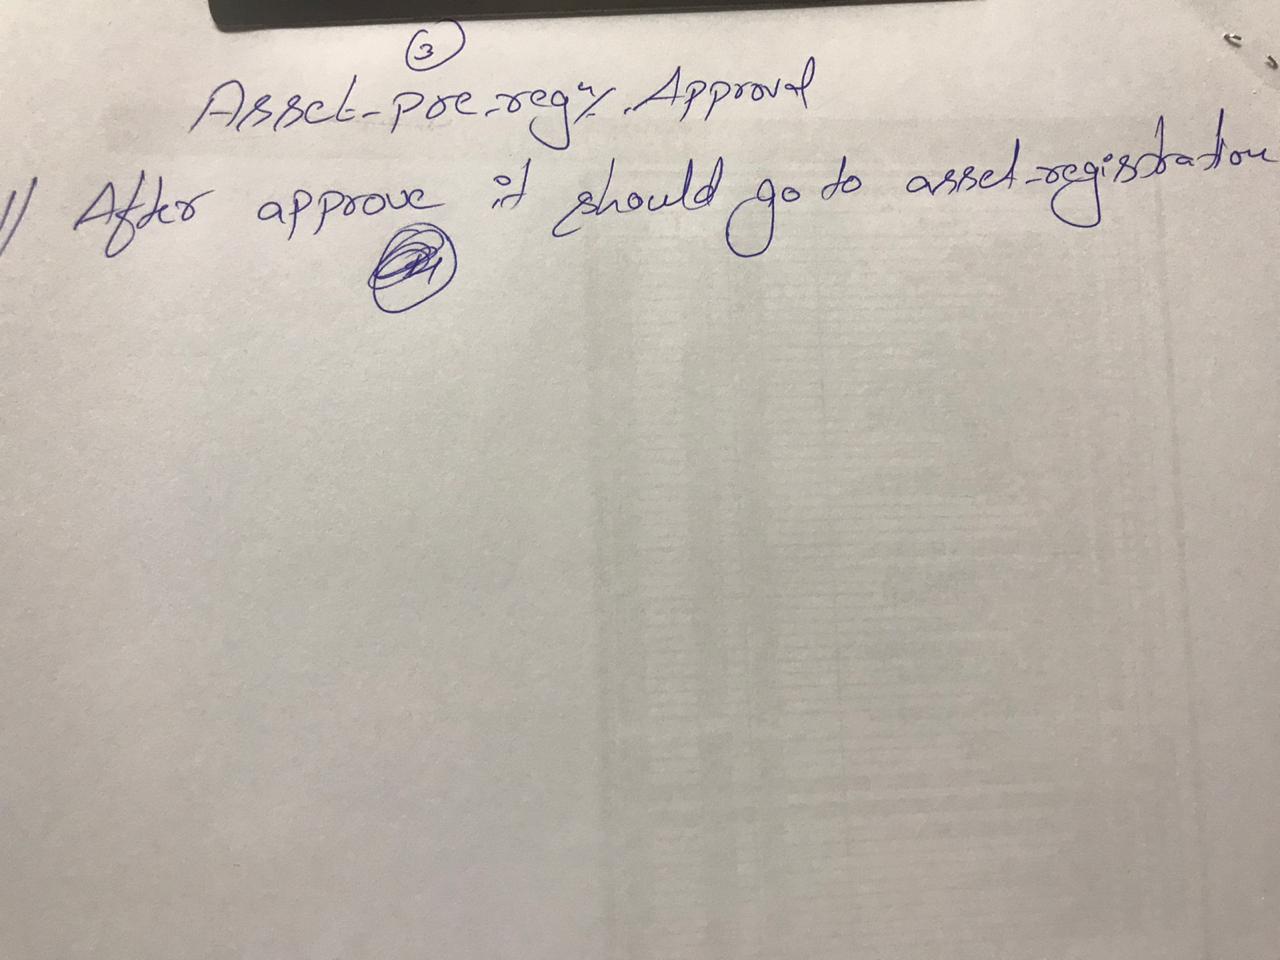 3
Asset-pre-regn. Approval
1) After approve it should go to asset-registration